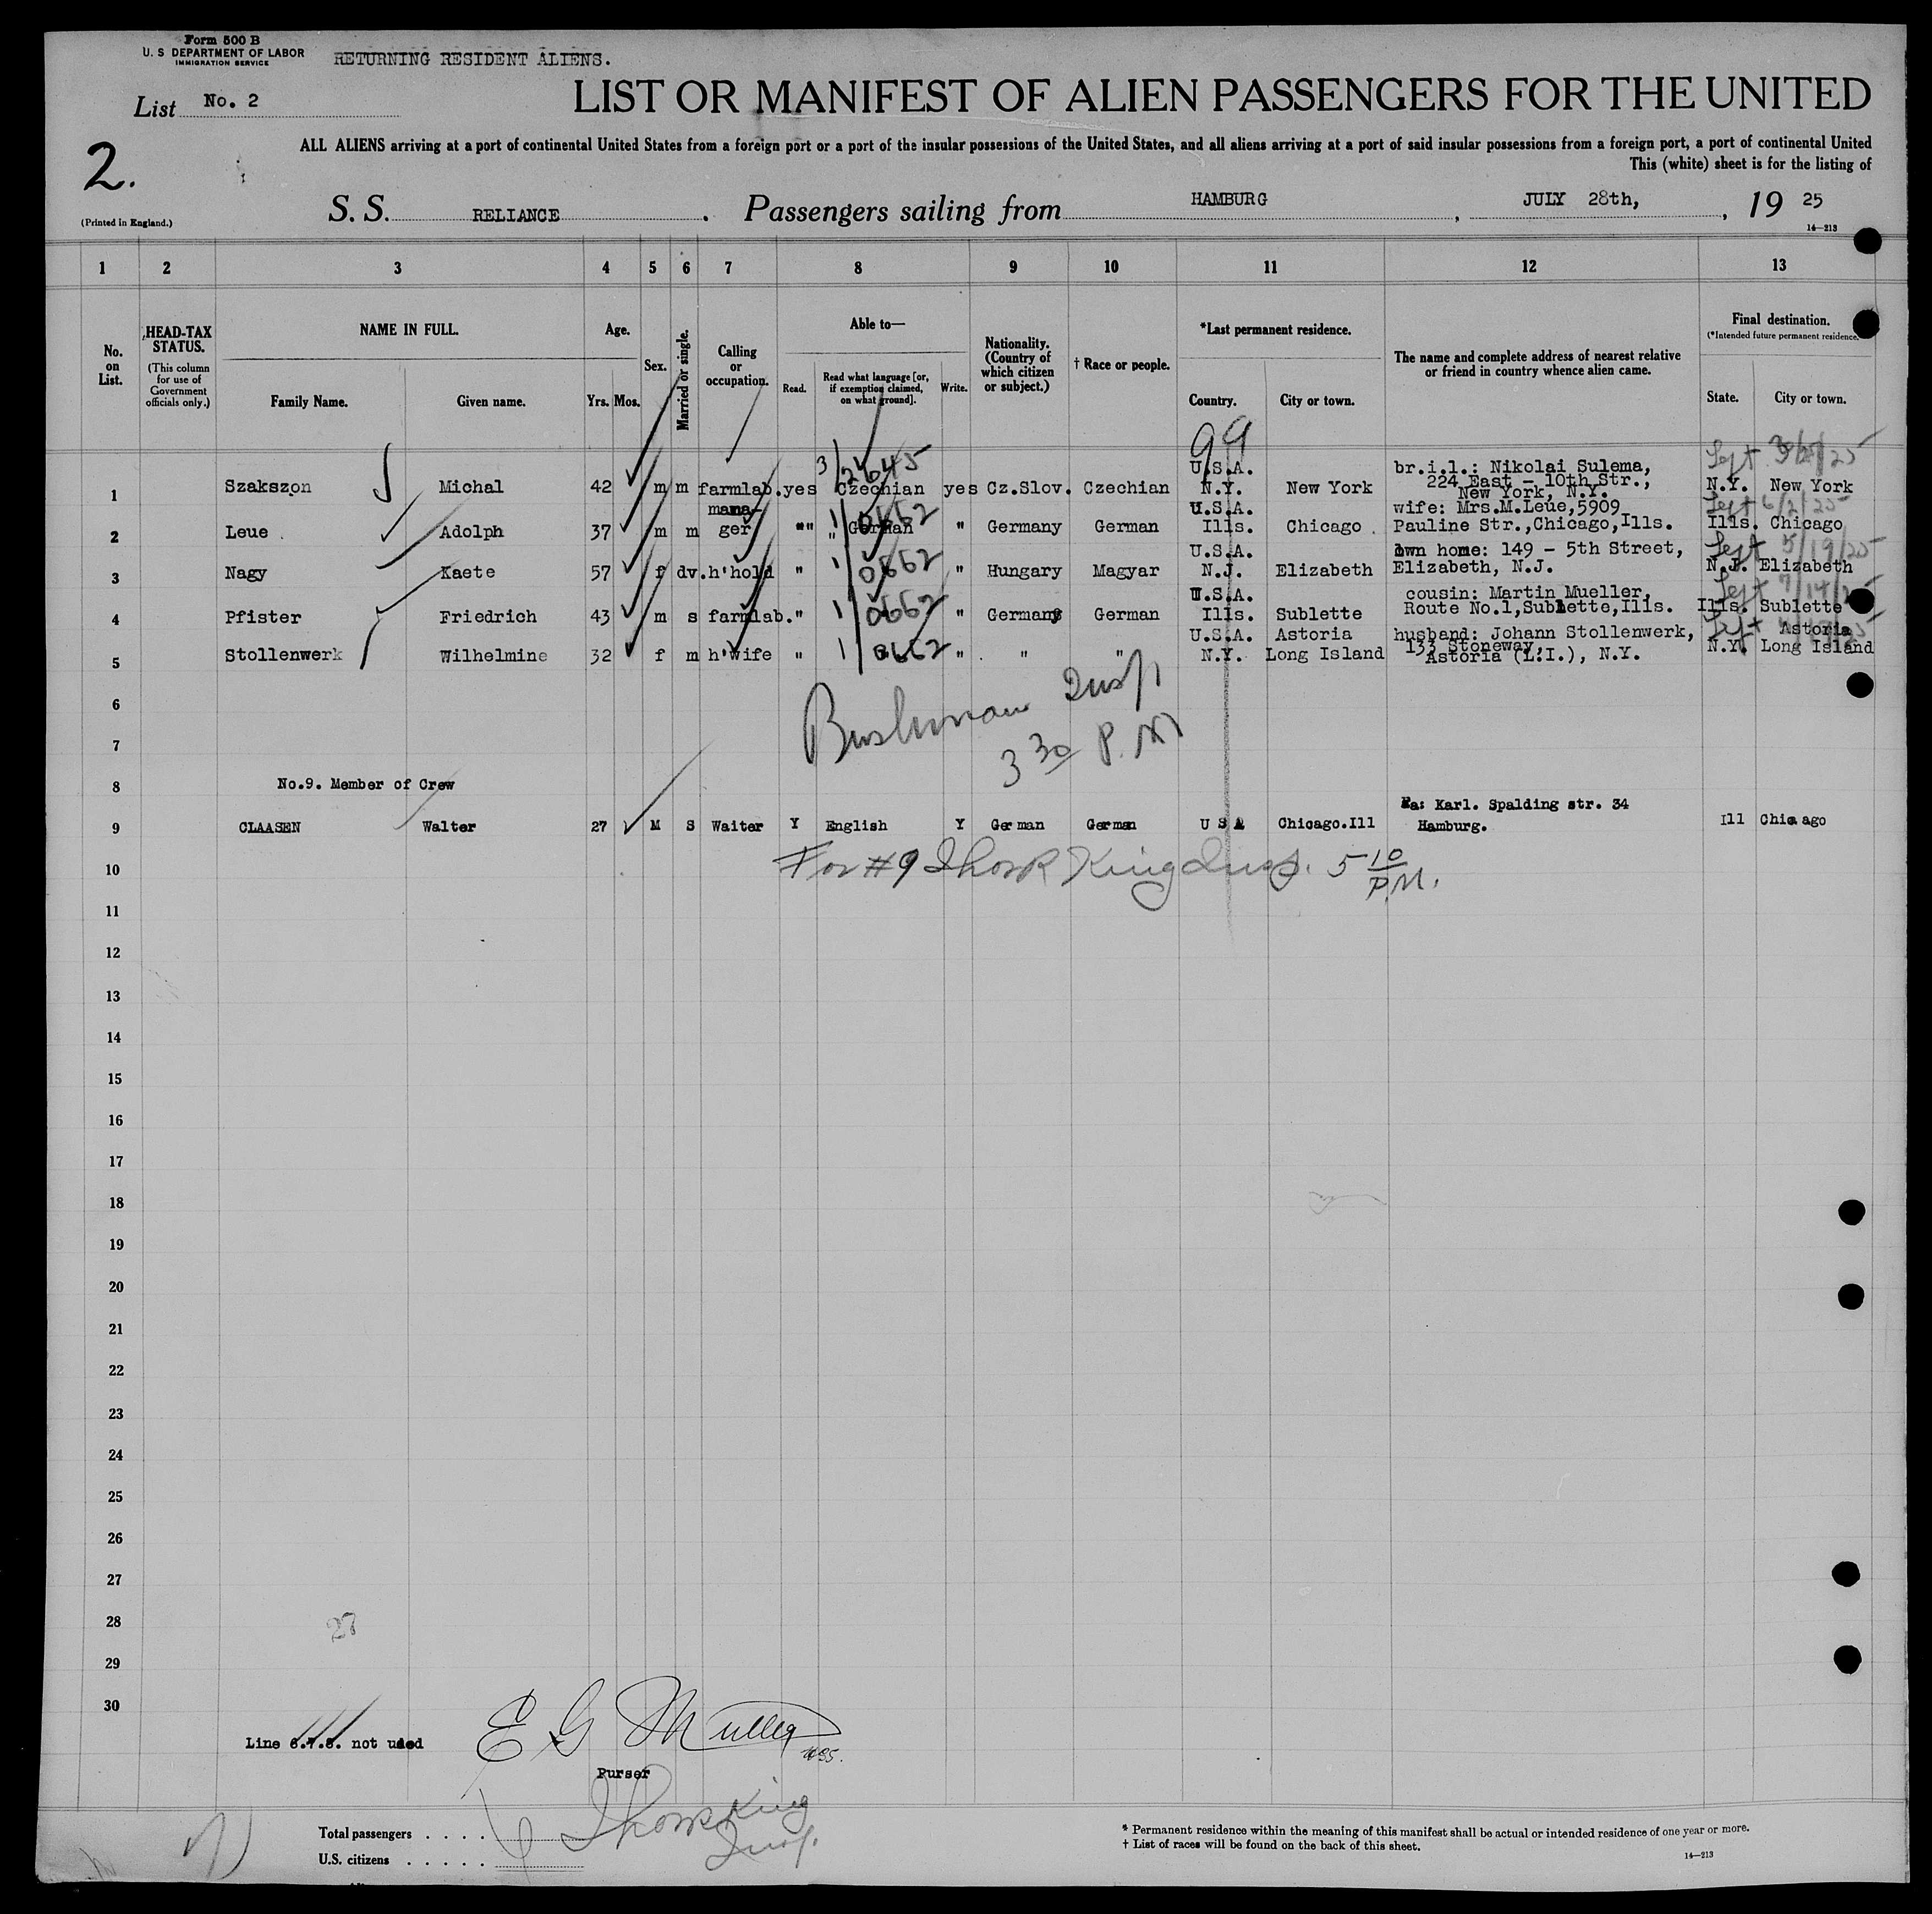 Form 500 B
U. S DEPARTMENT OF LABOR
IMMIGRATION SERVICE
RETURNING RESIDENT ALIENS.
List No. 2
LIST OR MANIFEST OF ALIEN PASSENGERS FOR THE UNITED
ALL ALIENS arriving at a port of continental United States from a foreign port or a port of the insular possessions of the United States, and all aliens arriving at a port of said insular possessions from a foreign port, a port of continental United
This (white) sheet is for the listing of
2.
(Printed in England.)
S. S. RELIANCE . Passengers sailing from HAMBURG , JULY 28th, , 19 25
14—213
1 2 3 4 5 6 7 8 9 10 11 12 13
No. on List.
HEAD-TAX STATUS.
(This column for use of Government officials only.)
NAME IN FULL.
Family Name. Given name.
Age.
Yrs. Mos.
Sex.
Married or single.
Calling or occupation.
Able to—
Read. Read what language [or, if exemption claimed, on what ground]. Write.
Nationality. (Country of which citizen or subject.)
† Race or people.
*Last permanent residence.
Country. City or town.
The name and complete address of nearest relative or friend in country whence alien came.
Final destination.
(*Intended future permanent residence.
State. City or town.
99
3/2645
1 Szakszon Michal 42 m m farmlab. yes Czechian yes Cz.Slov. Czechian U.S.A. N.Y. New York br.i.l.: Nikolai Sulema, 224 East - 10th Str., New York, N.Y. N.Y. New York
1/0662
2 Leue Adolph 37 m m mana-ger "" German " Germany German U.S.A. Ills. Chicago wife: Mrs.M.Leue,5909 Pauline Str.,Chicago,Ills. Ills. Chicago
Left 6/2/25
1/0662
3 Nagy Kaete 57 f dv. h'hold " " Hungary Magyar U.S.A. N.J. Elizabeth own home: 149 - 5th Street, Elizabeth, N.J. N.J. Elizabeth
Left 5/19/25
1/0662
4 Pfister Friedrich 43 m s farmlab. " " Germany German U.S.A. Ills. Sublette cousin: Martin Mueller, Route No.1,Sublette,Ills. Ills. Sublette
Left 7/14/25
1/0662
5 Stollenwerk Wilhelmine 32 f m h'wife " " " " U.S.A. N.Y. Astoria Long Island husband: Johann Stollenwerk, 133 Stoneway, Astoria (L.I.), N.Y. N.Y. Astoria Long Island
6
Bushman Insp
7
3 30 P. M
8 No.9. Member of Crew
9 CLAASEN Walter 27 M S Waiter Y English Y German German U S A Chicago.Ill Fa: Karl. Spalding str. 34 Hamburg. Ill Chicago
10 For #9 Thos R King Insp. 5 10 P.M.
11
12
13
14
15
16
17
18
19
20
21
22
23
24
25
26
27
28
27
29
30
Line 6.7.8. not used
E G Muller
Purser
Thos R King
Insp.
Total passengers . . . .
U.S. citizens . . . . .
* Permanent residence within the meaning of this manifest shall be actual or intended residence of one year or more.
† List of races will be found on the back of this sheet.
14—213